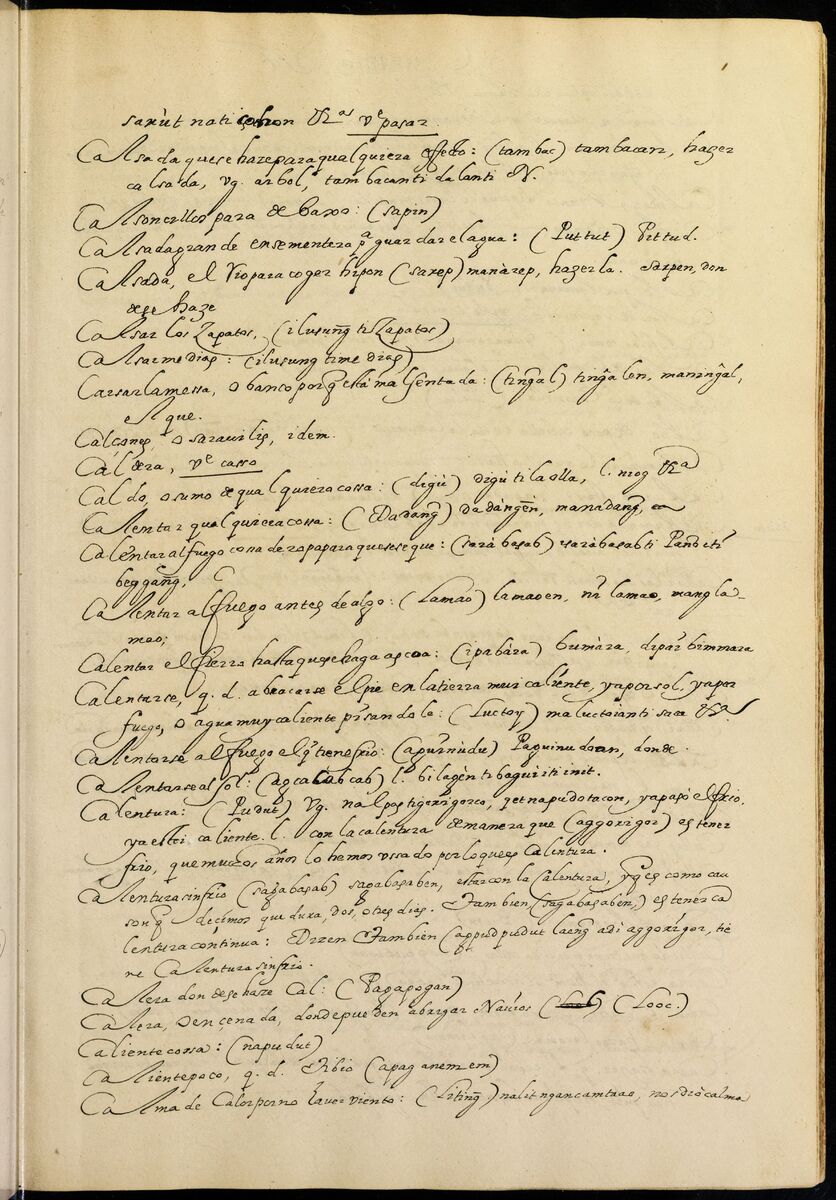 sarùt nati çohon &ra. vᵉ pasar.
Calsada que se haze para qualquiera effecto: (tambac) tambacan, hazer
calsada, vg. arbol, tambacanti dalanti N.
Calsoncillos para de baxo: (sapin)
Calsada grande en sementera pᵃ guardar el agua: (Puttut) Pittud.
Calsada, el rio para coger hipon (sarep) manàrep, hazerla. sarpen, don
de se haze
Calsar los Zapatos, (ilusung̃ ti Zapatos)
Calsar medias: (ilusung ti medias)
Calsar la messa, o banco porq̃ està mal sentada: (ting̃al) ting̃alen, maning̃al,
el que.
Calçones, o sarauilis, idem.
Caldera, vᵉ casso
Caldo, o sumo de qualquiera cossa: (digù) digù ti la olla, l. mog &rᵃ
Calentar qualquiera cossa: (Dadang̃) dadàng̃en, manadang̃, ea
Calentar al fuego cosa de ropa para que se seque: (sarà basab) sarabasab ti Panditi
beggang̃,
Calentar al fuego antes de algo: (Lamao) lamaoen, ni lamao, mang la-
mao;
Calentar el fierro hasta que se haga ascua: (ipabàra) bumàra, dipai bimmara
Calentarse, q. d. abracarse el pie en la tierra mui caliente, ya por sol, ya por
fuego, o agua muy caliente pisandole: (Luctoy) maluctoianti saca &rᵃ.
Calentarse al fuego el q̃ tiene frio: (aguinudu) Paguinudoan, donde.
Calentarse al sol: (agcabcab) l. bilagenti baguiti init.
Calentura: (Pudut) Vg. nalpas tigorigorco, yet napudotacon, ya pasò el frio,
ya estoi caliente. l. con la calentura de manera que (aggorigor) es tener
frio, que muchos años lo hemos vssado por lo que es Calentura.
Calentura sin frio (sagabasab) sagabasaben, estar con la Calentura, yq̃ es como cau
son q̃ decimos que dura, dos, o tres dias. Tambien (sagabasaben,) es tener ca
lentura continua: Dizen Tambien (appudpudut laeng̃ adi aggorigor, tie
ne Calentura sin frio.
Calera donde se haze Cal: (Pagapogan)
Calera, o ençenada, donde pueden abrigar Nauios (Looc.)
Caliente cossa: (napudut)
Caliente poco, q. d. Tibio (apaganemem)
Calma de Calor por no hauer viento: (Liting̃) nalitngancamtao, nos diò calma